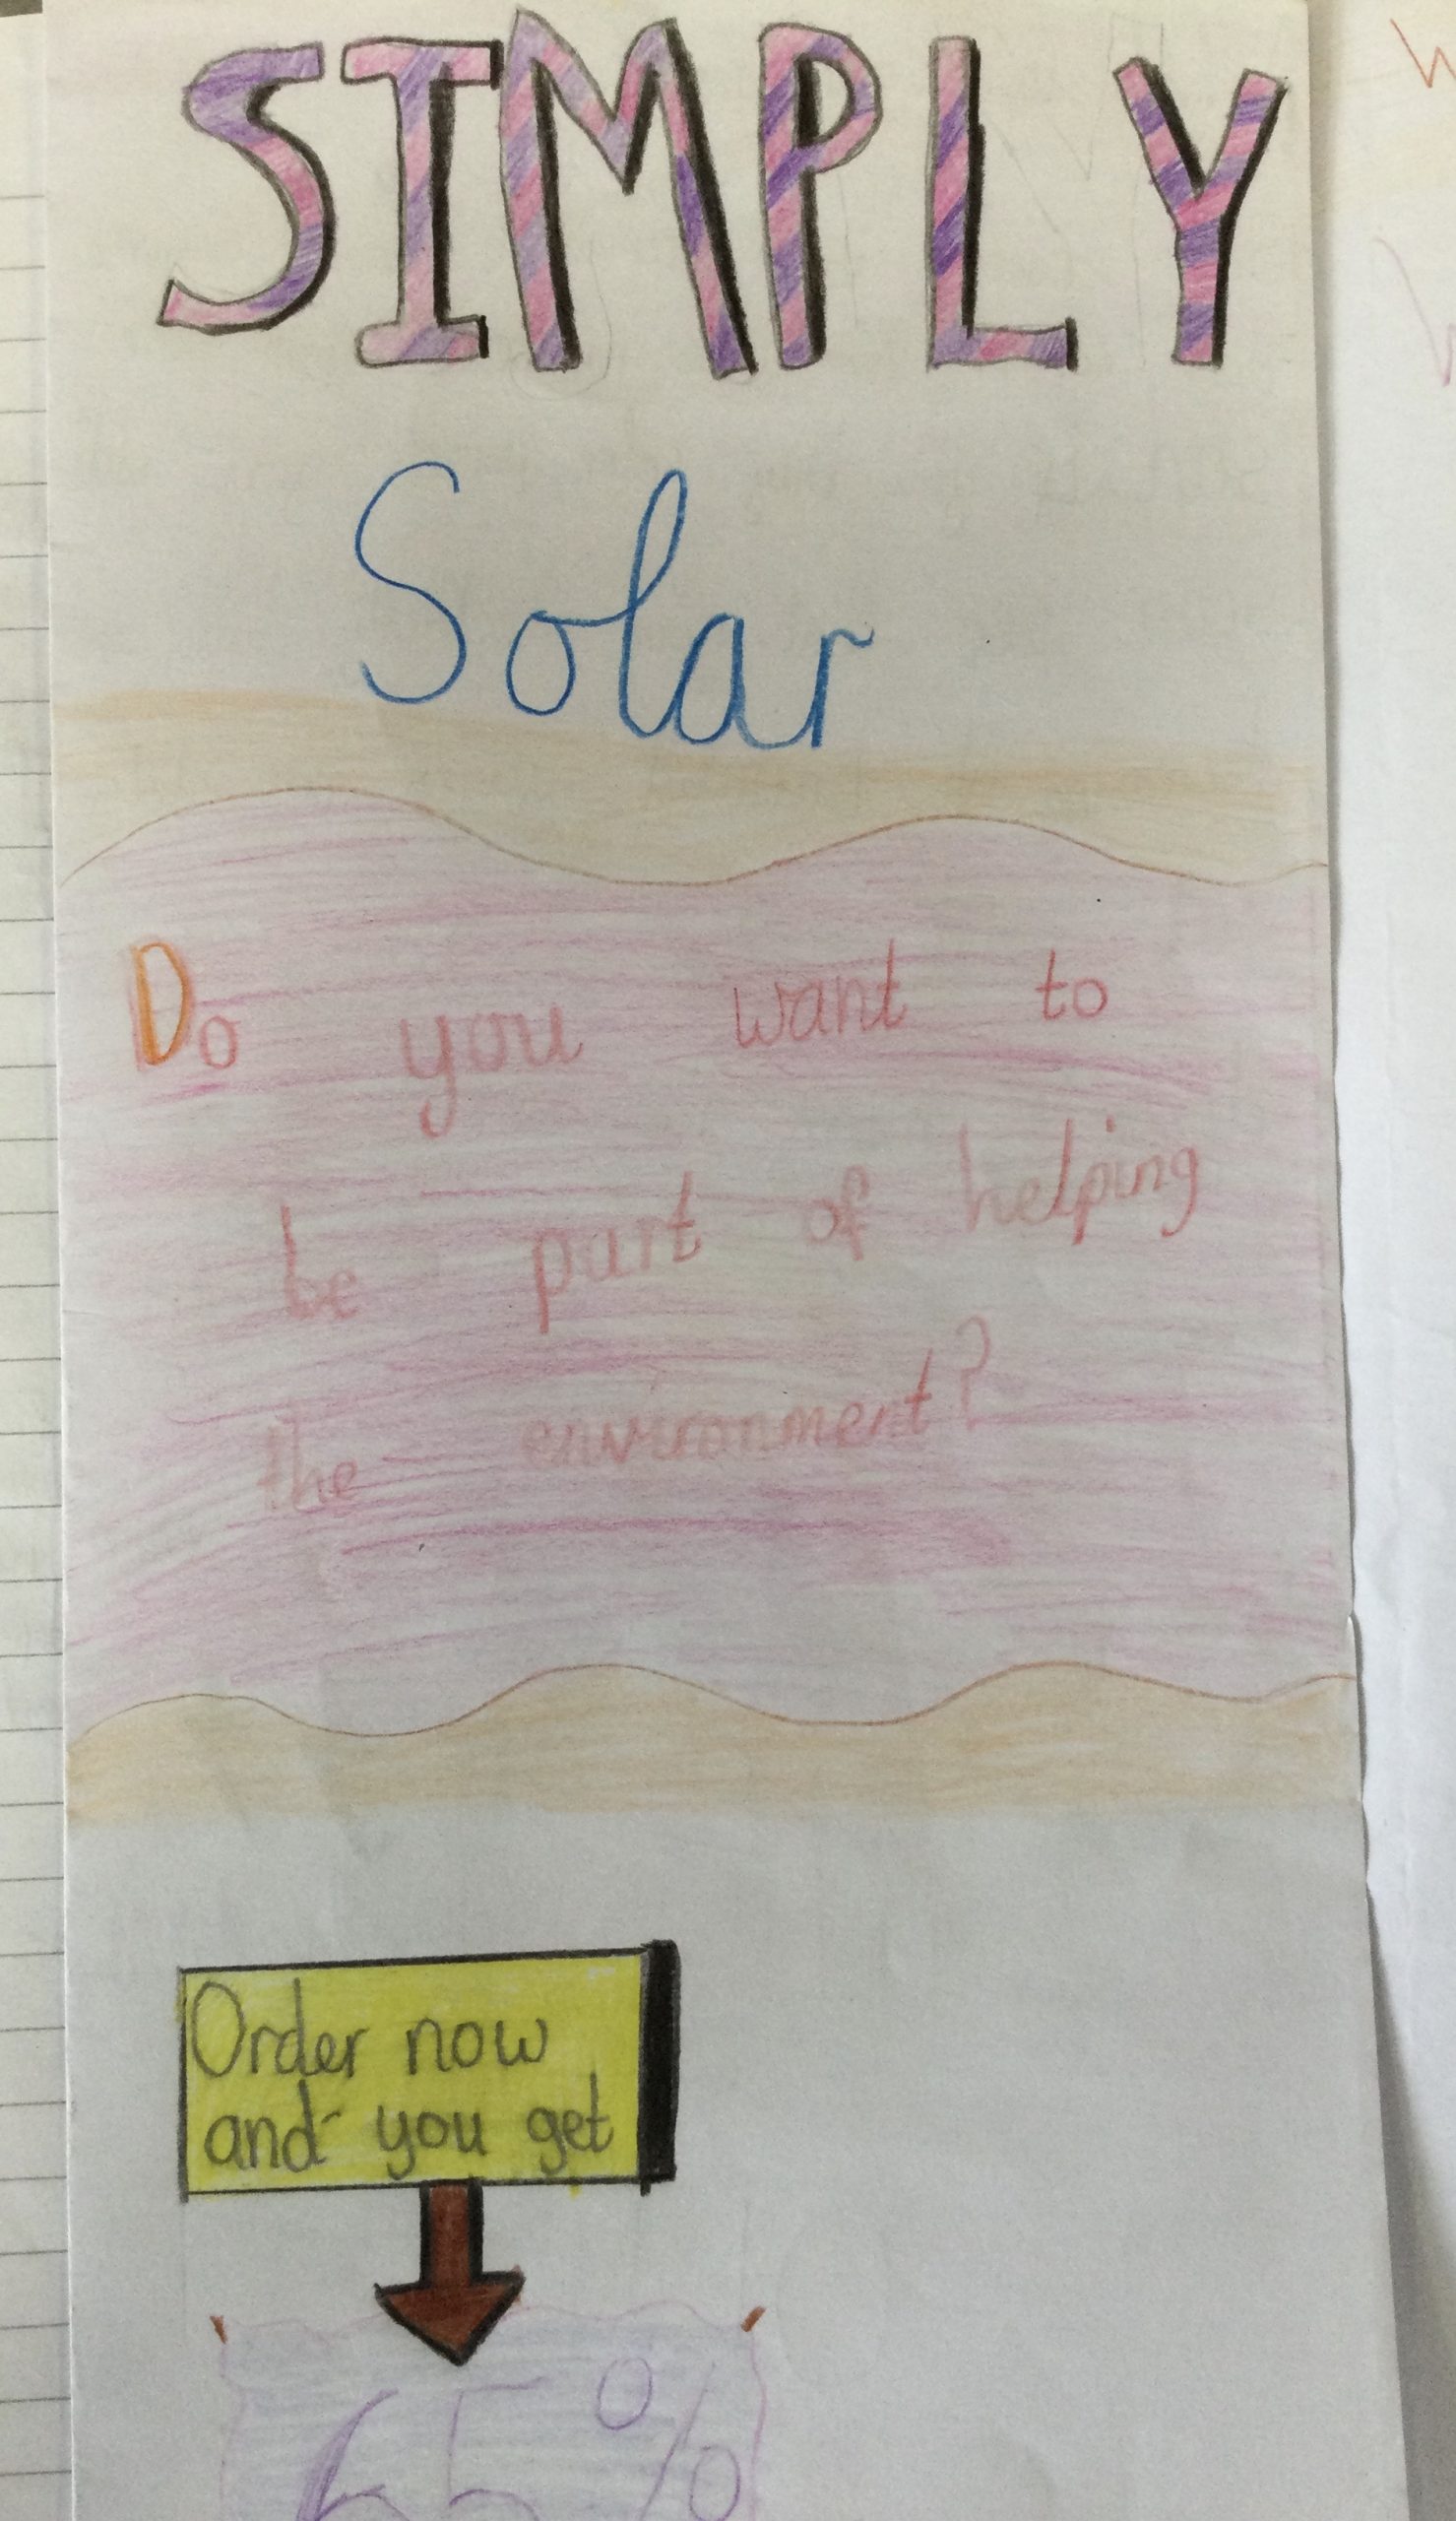 SIMPLY
Solar
Do you want to
be part of helping
the environment?
Order now
and you get
65%